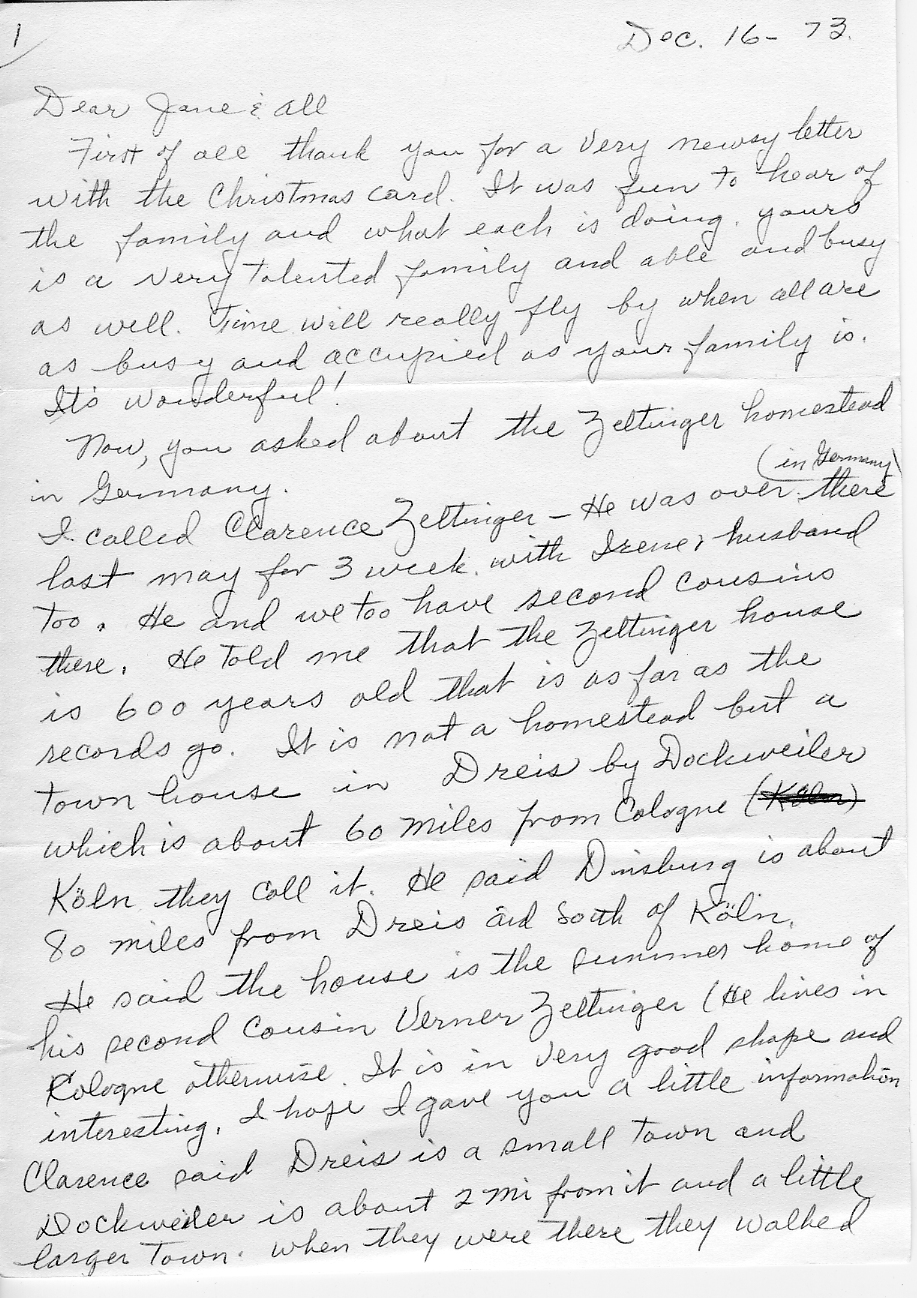 1
Dec. 16- 73.
Dear Jane & all
First of all thank you for a very newsy letter
with the Christmas card. It was fun to hear of
the family and what each is doing. yours
is a very talented family and able and busy
as well. Time will really fly by when all are
as busy and occupied as your family is.
It's wonderful!
Now, you asked about the Zeltinger homestead
in Germany.
(in Germany)
I called Clarence Zeltinger - He was over there
last may for 3 week. with Irene & husband
too. He and we too have second cousins
there. He told me that the Zeltinger house
is 600 years old that is as far as the
records go. It is not a homestead but a
town house in Dreis by Dockweiler
which is about 60 miles from Cologne (Köln)
Köln they call it. He said Dinsburg is about
80 miles from Dreis and South of Köln.
He said the house is the summer home of
his second cousin Verner Zeltinger (He lives in
Kologne otherwise. It is in very good shape and
interesting. I hope I gave you a little information
Clarence said Dreis is a small town and
Dockweiler is about 2 mi from it and a little
larger town. when they were there they walked